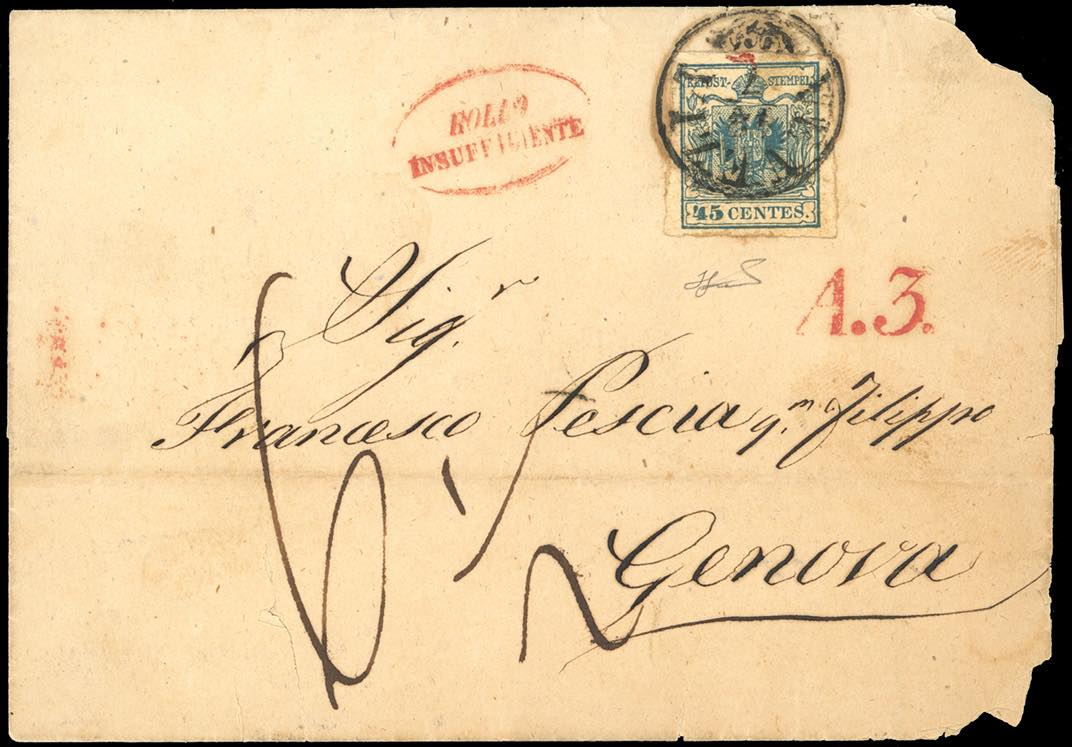 BOLLO
INSUFFICIENTE
KKPOST-STEMPEL
45 CENTES.
A.3.
Sig.r
Francesco Pescia q.m Filippo
Genova